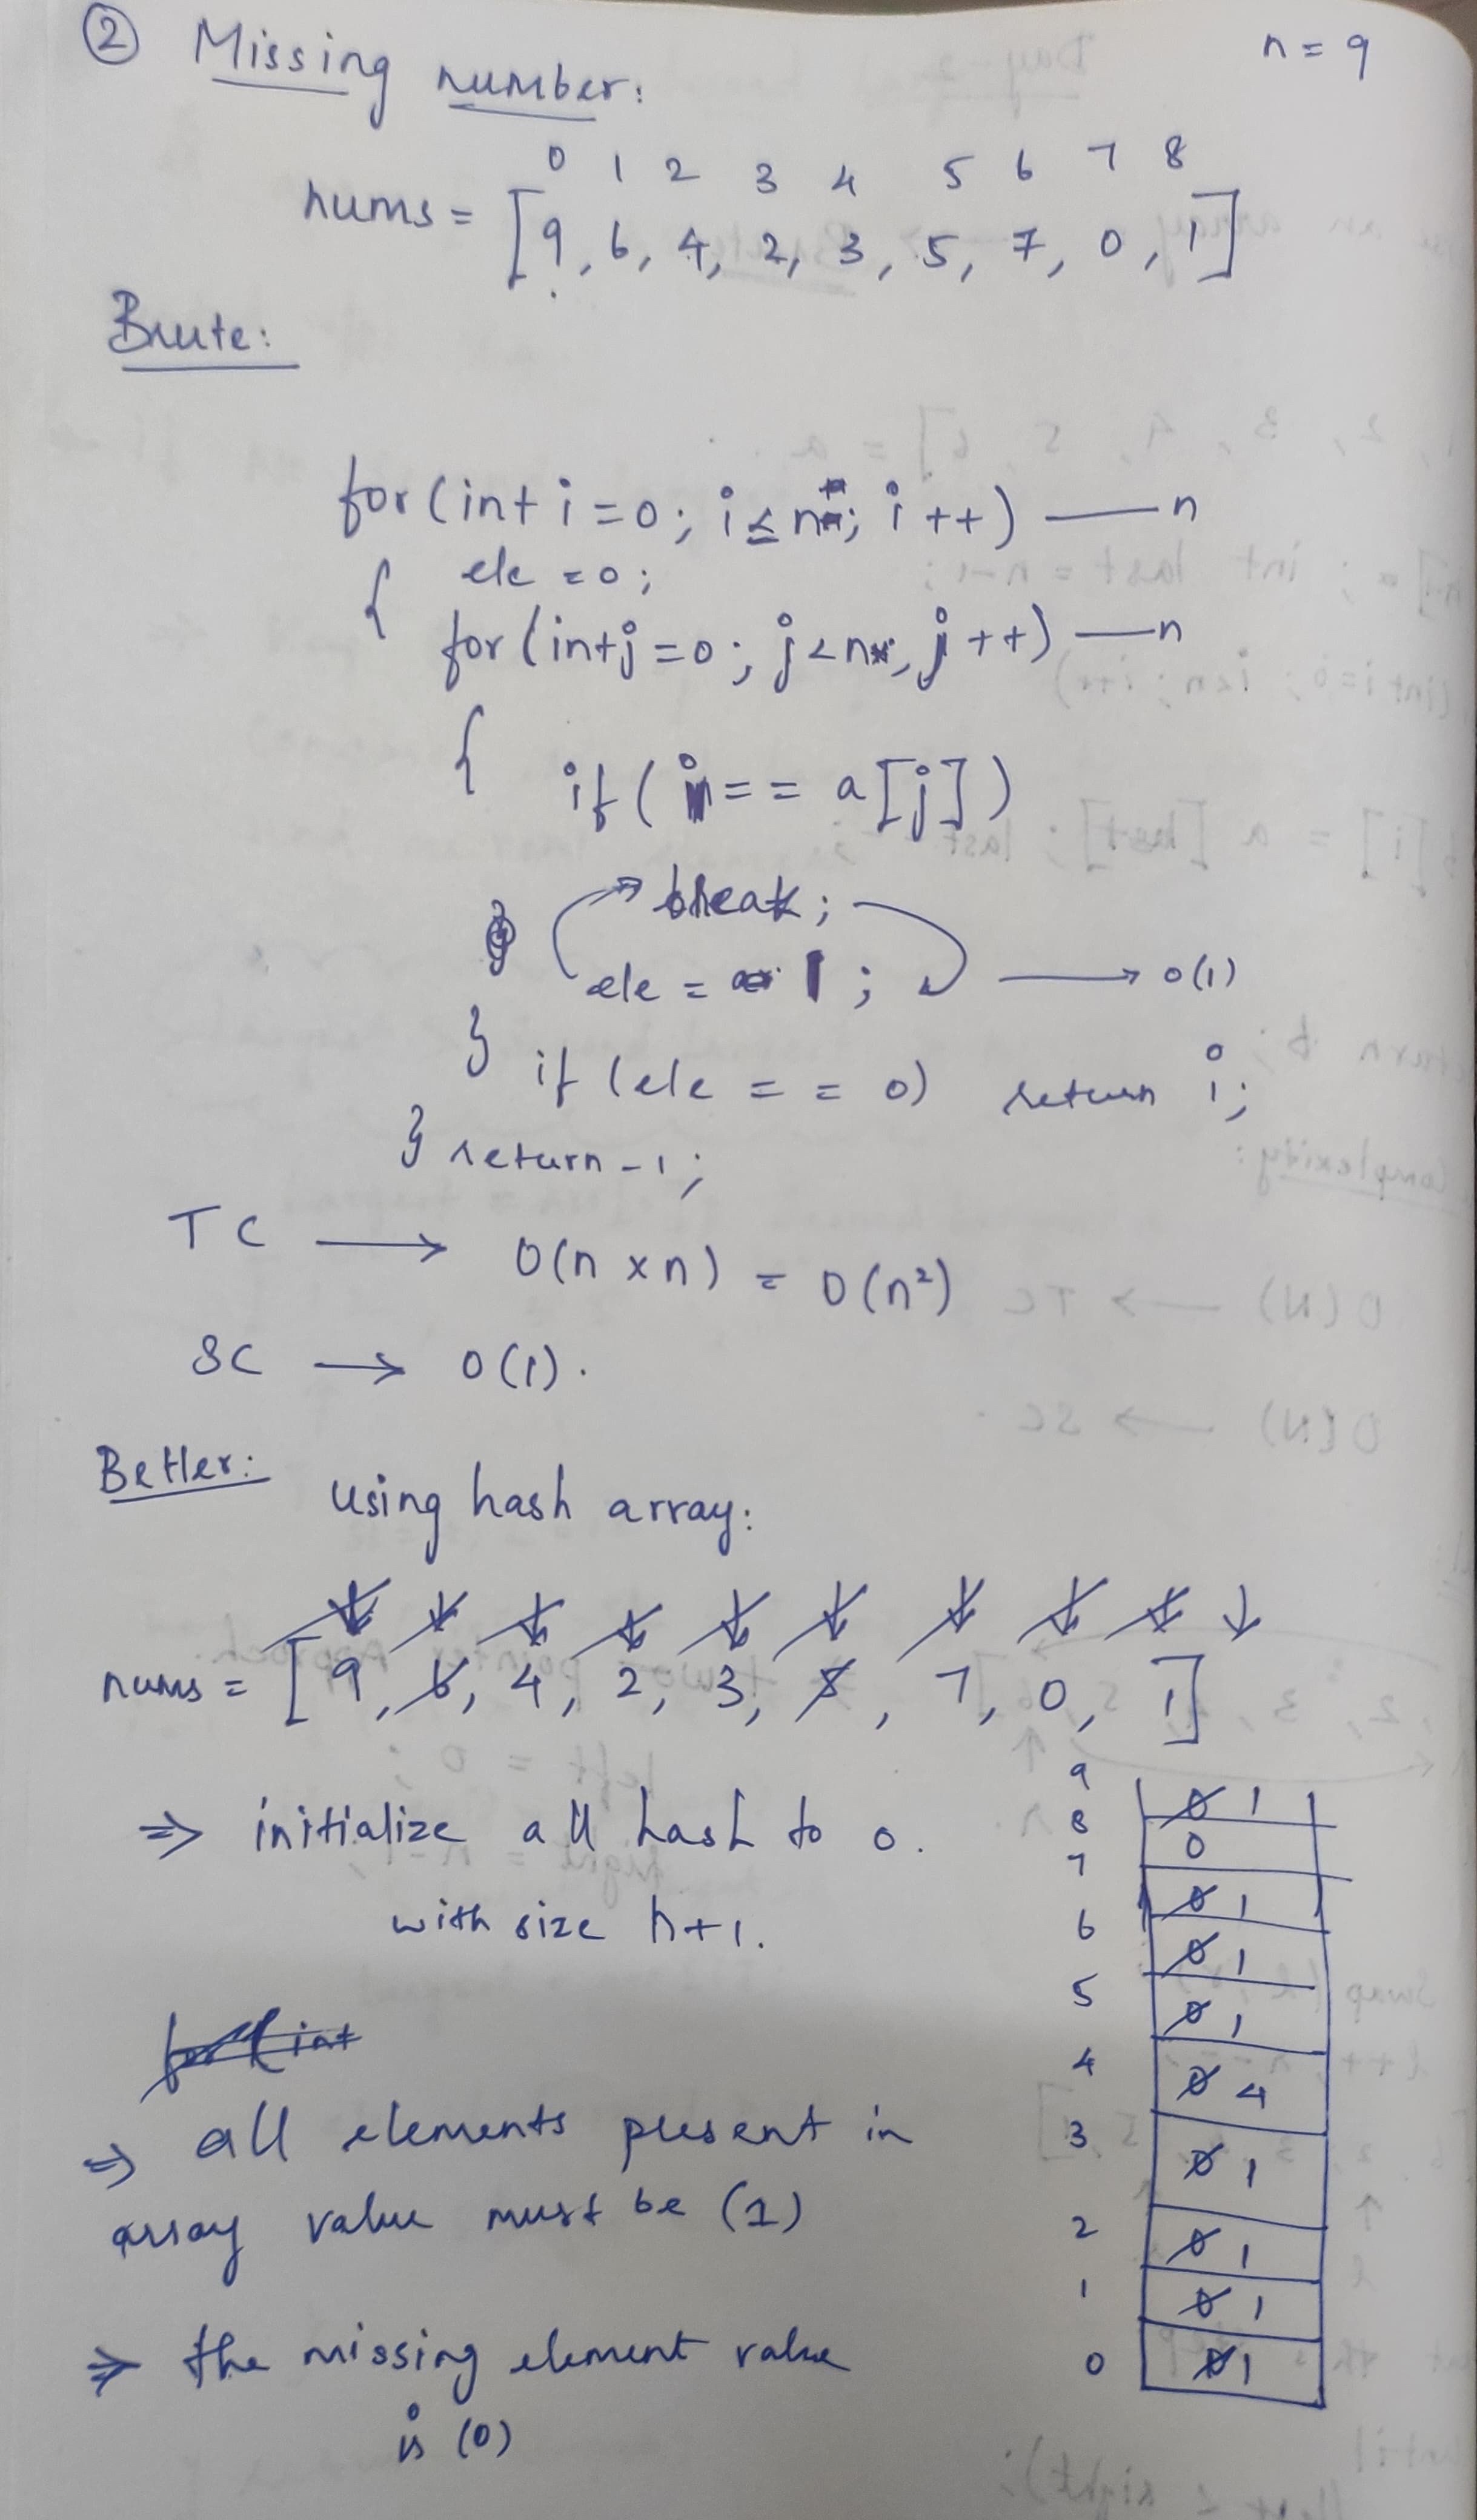 ② Missing number: n = 9
0 1 2 3 4 5 6 7 8
nums = [9, 6, 4, 2, 3, 5, 7, 0, 1]
Brute:
for (int i = 0; i ≤ n; i ++) — n
{ ele = 0;
for (int j = 0; j < n; j ++) — n
{
if ( i == a[j])
break;
ele = 1; → O(1)
} if (ele == 0) return i;
} return -1;
TC → O(n x n) = O(n²)
SC → O(1).
Better: using hash array:
nums = [9, 6, 4, 2, 3, 5, 7, 0, 1]
⇒ initialize all hash to 0.
with size n+1.
for (int
⇒ all elements present in
array value must be (1)
⇒ the missing element value
is (0)
9 0 1
8 0
7 0 1
6 0 1
5 0 1
4 0 4
3 0 1
2 0 1
1 0 1
0 0 1